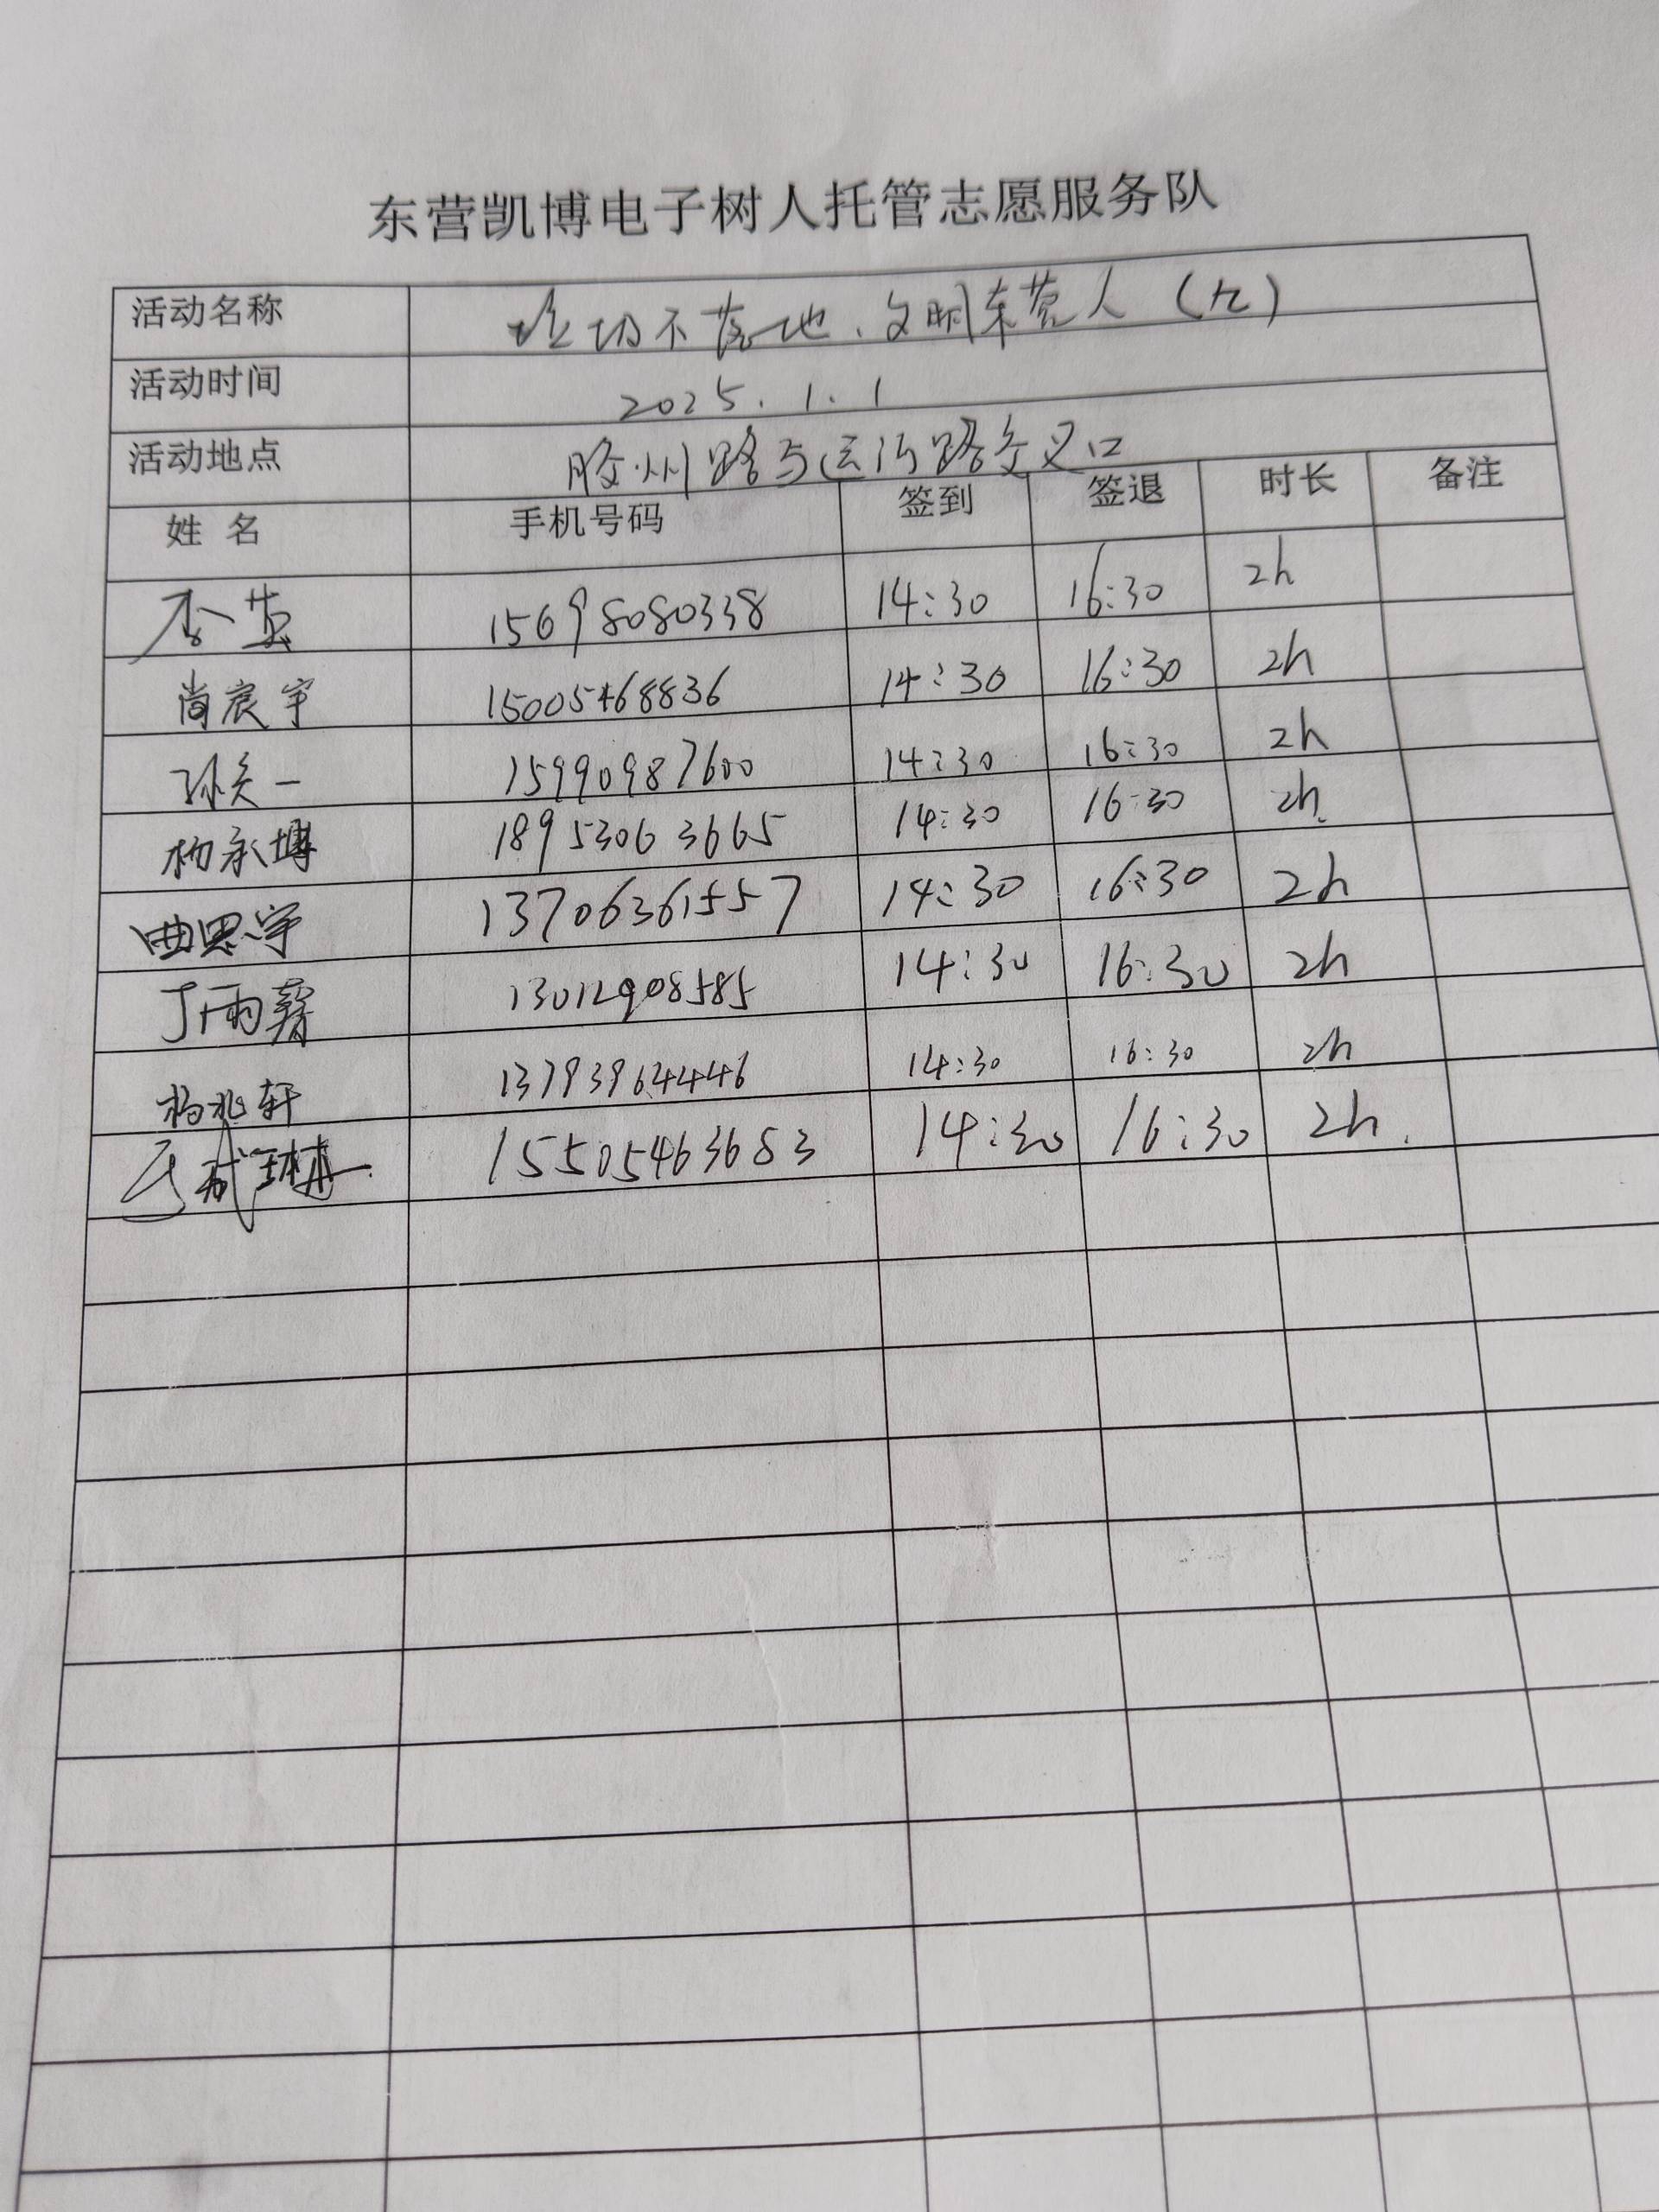 东营凯博电子树人托管志愿服务队
活动名称 垃圾不落地、文明东营人（九）
活动时间 2025.1.1
活动地点 胶州路与运河路交叉口
姓 名 手机号码 签到 签退 时长 备注
15698080338 14:30 16:30 2h
尚宸宇 15005468836 14:30 16:30 2h
孙 一 15990987600 14:30 16:30 2h
杨承博 18953063665 14:30 16:30 2h.
曲思宇 13706361557 14:30 16:30 2h
丁雨 13012908585 14:30 16:30 2h
杨兆轩 13793964446 14:30 16:30 2h
15505463683 14:30 16:30 2h.